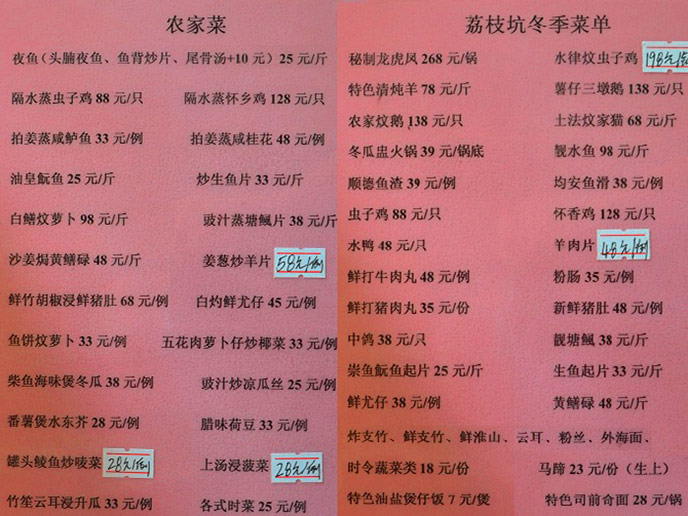 农家菜
夜鱼（头腩夜鱼、鱼背炒片、尾骨汤+10 元）25 元/斤
隔水蒸虫子鸡 88 元/只 隔水蒸怀乡鸡 128 元/只
拍姜蒸咸鲈鱼 33 元/例 拍姜蒸咸桂花 48 元/例
油皇鲩鱼 25 元/斤 炒生鱼片 33 元/斤
白鳝炆萝卜 98 元/斤 豉汁蒸塘鲺片 38 元/斤
沙姜焗黄鳝碌 48 元/斤 姜葱炒羊片 58元/例
鲜竹胡椒浸鲜猪肚 68 元/例 白灼鲜尤仔 45 元/例
鱼饼炆萝卜 33 元/例 五花肉萝卜仔炒椰菜 33 元/例
柴鱼海味煲冬瓜 38 元/例 豉汁炒凉瓜丝 25 元/例
番薯煲水东芥 28 元/例 腊味荷豆 33 元/例
罐头鲮鱼炒唛菜 28元/例 上汤浸菠菜 28元/例
竹笙云耳浸升瓜 33 元/例 各式时菜 25 元/例
荔枝坑冬季菜单
秘制龙虎凤 268 元/锅 水律炆虫子鸡 198元/
特色清炖羊 78 元/斤 薯仔三墩鹅 138 元/只
农家炆鹅 138 元/只 土法炆家猫 68 元/斤
冬瓜盅火锅 39 元/锅底 靓水鱼 98 元/斤
顺德鱼渣 39 元/例 均安鱼滑 38 元/例
虫子鸡 88 元/只 怀香鸡 128 元/只
水鸭 48 元/只 羊肉片 48元/例
鲜打牛肉丸 48 元/例 粉肠 35 元/例
鲜打猪肉丸 35 元/份 新鲜猪肚 48 元/例
中鸽 38 元/只 靓塘鲺 38 元/斤
崇鱼鲩鱼起片 25 元/斤 生鱼起片 33 元/斤
鲜尤仔 38 元/例 黄鳝碌 48 元/斤
炸支竹、鲜支竹、鲜淮山、云耳、粉丝、外海面、
时令蔬菜类 18 元/份 马蹄 23 元/份（生上）
特色油盐煲仔饭 7 元/煲 特色司前奇面 28 元/锅